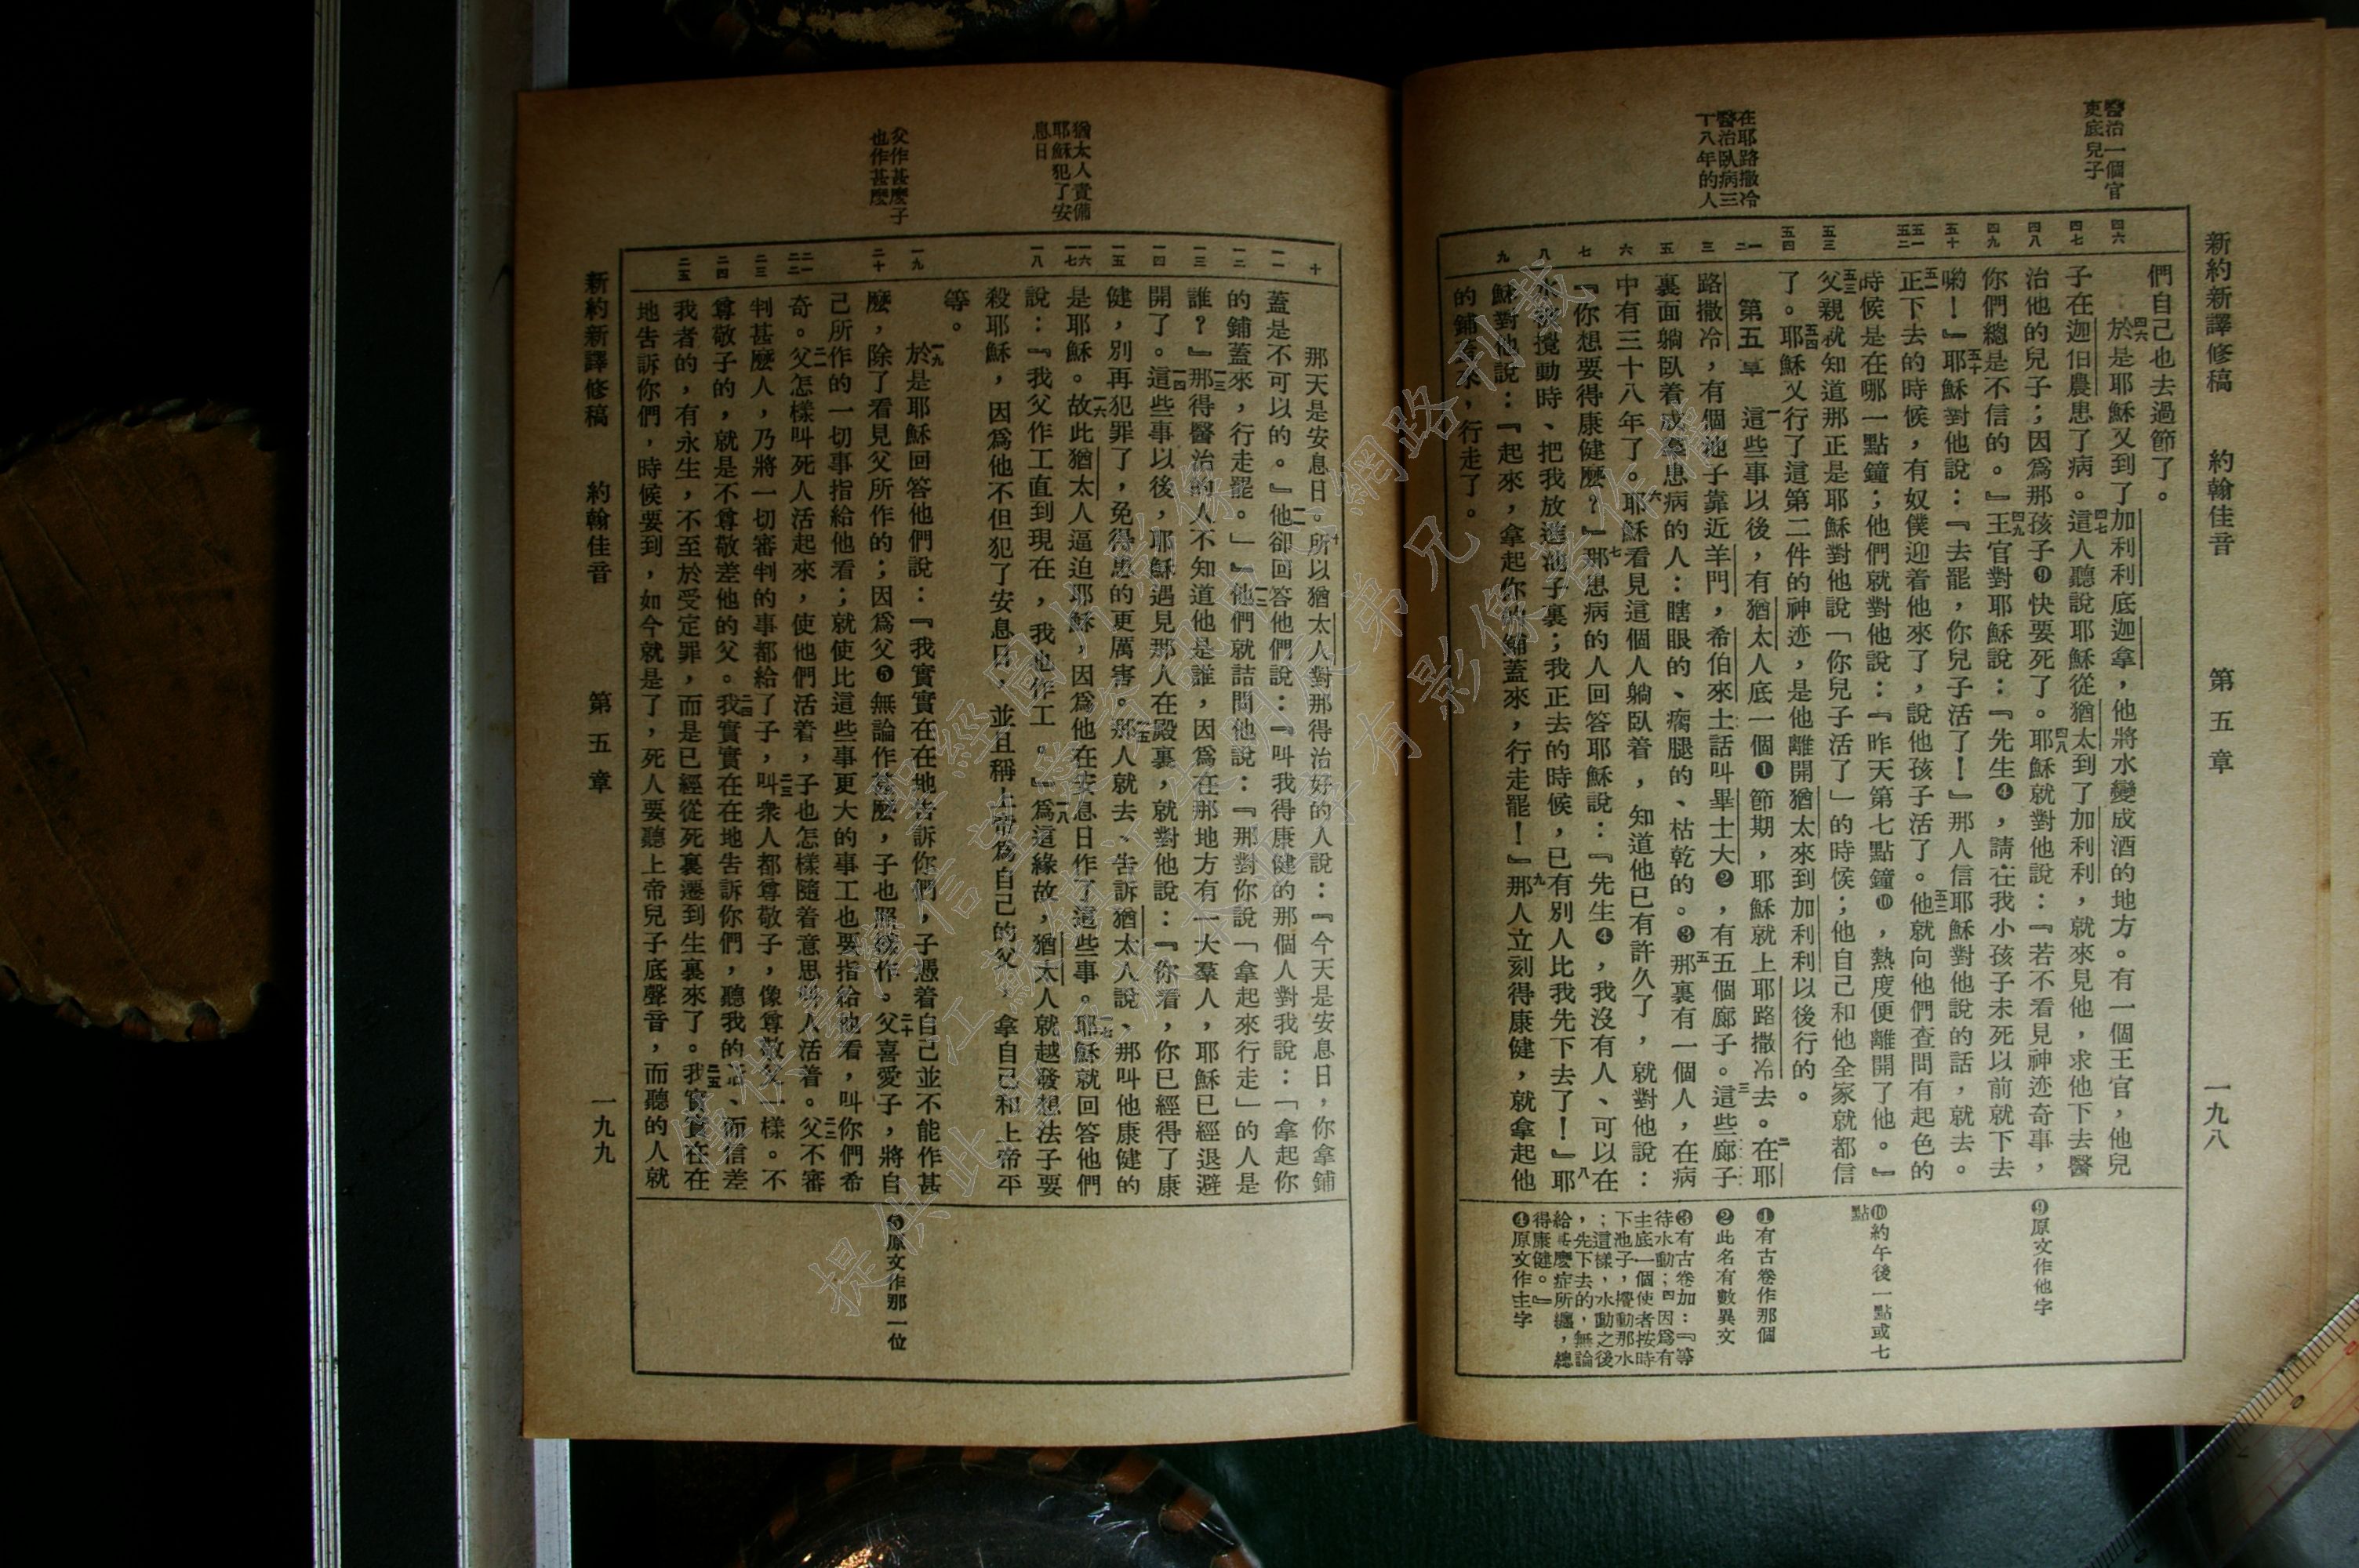 新約新譯修稿　約翰佳音　第五章　一九八
醫治一個官
吏底兒子
在耶路撒冷
醫治臥病三
十八年的人
們自己也去過節了。
四六於是耶穌又到了加利利底迦拿，他將水變成酒的地方。有一個王官，他兒
子在迦伯農患了病。四七這人聽說耶穌從猶太到了加利利，就來見他，求他下去醫
治他的兒子；因爲那孩子❾快要死了。四八耶穌就對他說：『若不看見神迹奇事，
你們總是不信的。』四九王官對耶穌說：『先生❹，請在我小孩子未死以前就下去
喲！』五十耶穌對他說：『去罷，你兒子活了！』那人信耶穌對他說的話，就去。
五一正下去的時候，有奴僕迎着他來了，說他孩子活了。五二他就向他們查問有起色的
時候是在哪一點鐘；他們就對他說：『昨天第七點鐘❿，熱度便離開了他。』
五三父親就知道那正是耶穌對他說「你兒子活了」的時候；他自己和他全家就都信
了。五四耶穌又行了這第二件的神迹，是他離開猶太來到加利利以後行的。
第五章　一這些事以後，有猶太人底一個❶節期，耶穌就上耶路撒冷去。二在耶
路撒冷，有個池子靠近羊門，希伯來土話叫畢士大❷，有五個廊子。三這些廊子
裏面躺臥着成羣患病的人：瞎眼的、瘸腿的、枯乾的。❸五那裏有一個人，在病
中有三十八年了。六耶穌看見這個人躺臥着，知道他已有許久了，就對他說：
『你想要得康健麼？』七那患病的人回答耶穌說：『先生❹，我沒有人、可以在
水攪動時、把我放進池子裏；我正去的時候，已有別人比我先下去了！』八耶
穌對他說：『起來，拿起你的鋪蓋來，行走罷！』九那人立刻得康健，就拿起他
的鋪蓋來，行走了。
❾原文作他字
❿約午後一點或七
點
❶有古卷作那個
❷此名有數異文
❸有古卷加：『等
待水動；四因爲有
主底一個使者按時
下池子，攪動那水
；這樣，水動之後
，先下去的，無論
給甚麼症所纏，總
得康健。』
❹原文作主字
猶太人責備
耶穌犯了安
息日
父作甚麼子
也作甚麼
那天是安息日。十所以猶太人對那得治好的人說：『今天是安息日，你拿鋪
蓋是不可以的。』一一他卻回答他們說：『叫我得康健的那個人對我說：「拿起你
的鋪蓋來，行走罷。」』一二他們就詰問他說：『那對你說「拿起來行走」的人是
誰？』一三那得醫治的人不知道他是誰，因爲在那地方有一大羣人，耶穌已經退避
開了。一四這些事以後，耶穌遇見那人在殿裏，就對他說：『你看，你已經得了康
健，別再犯罪了，免得患的更厲害。』一五那人就去、告訴猶太人說、那叫他康健的
是耶穌。一六故此猶太人逼迫耶穌，因爲他在安息日作了這些事。一七耶穌就回答他們
說：『我父作工直到現在，我也作工。』一八爲這緣故，猶太人就越發想法子要
殺耶穌，因爲他不但犯了安息日，並且稱上帝爲自己的父，拿自己和上帝平
等。
一九於是耶穌回答他們說：『我實實在在地告訴你們，子憑着自己並不能作甚
麼，除了看見父所作的；因爲父❺無論作甚麼，子也照樣作。二十父喜愛子，將自
己所作的一切事指給他看；就使比這些事更大的事工也要指給他看，叫你們希
奇。二一父怎樣叫死人活起來，使他們活着，子也怎樣隨着意思叫人活着。二二父不審
判甚麼人，乃將一切審判的事都給了子，二三叫衆人都尊敬子，像尊敬父一樣。不
尊敬子的，就是不尊敬差他的父。二四我實實在在地告訴你們，聽我的話、而信差
我者的，有永生，不至於受定罪，而是已經從死裏遷到生裏來了。二五我實實在在
地告訴你們，時候要到，如今就是了，死人要聽上帝兒子底聲音，而聽的人就
❺原文作那一位
新約新譯修稿　約翰佳音　第五章　一九九